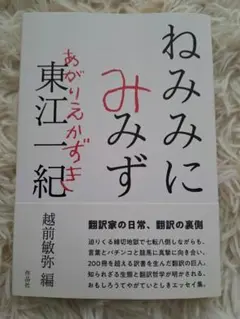 ねみみに
みみず
東江一紀
あがりえかずき
越前敏弥 編
翻訳家の日常、翻訳の裏側
迫りくる締切地獄で七転八倒しながらも、
言葉とパチンコと競馬に真摯に向き合い、
200冊を超える訳書を生んだ翻訳の巨人。
知られざる生態と翻訳哲学が明かされる、
おもしろうてやがていとしきエッセイ集。
作品社